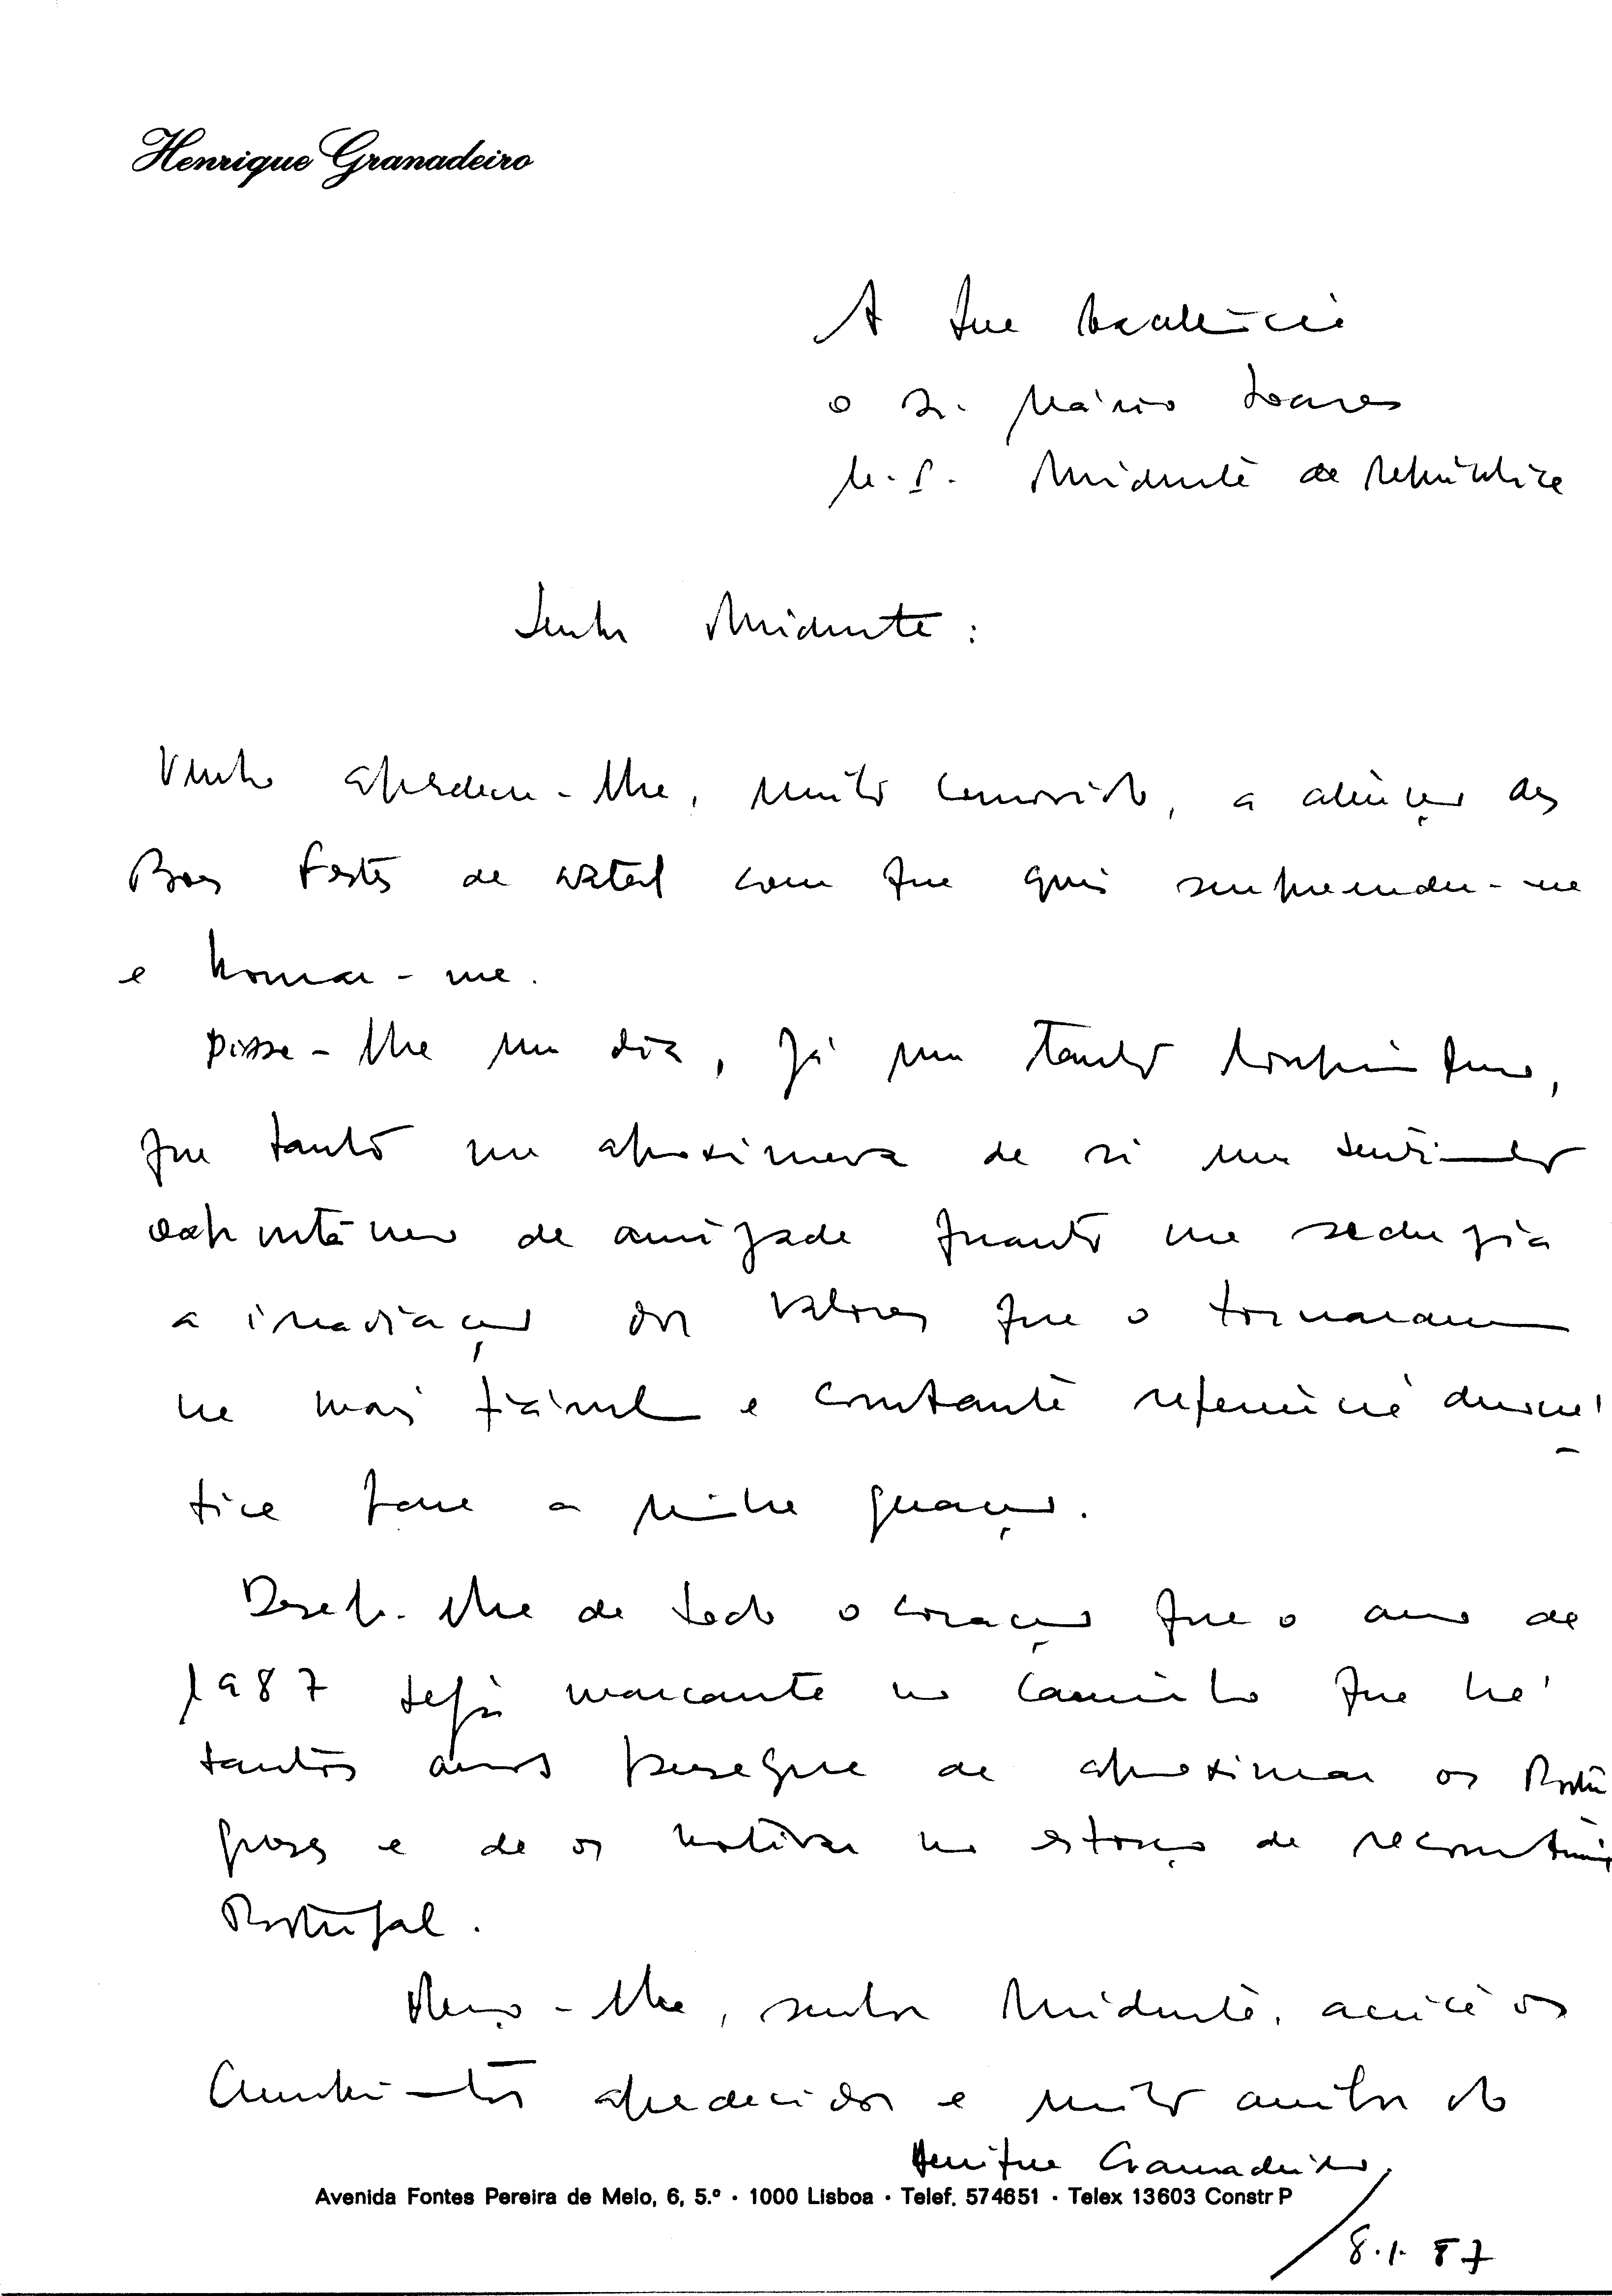 Henrique Granadeiro
A Sua Excelência
o Sr. Mário Soares
M.I. Presidente da República
Senhor Presidente:
Venho agradecer-lhe, muito comovido, a atenção das
Boas Festas de Natal com que quis surpreender-me
e honrar-me.
Disse-lhe um dia, já um tanto longínquo,
que tanto me aproximava de si um sentimento
espontâneo de amizade quanto me seduzia
a irradiação dos valores que o tornaram
na mais fiável e constante referência democrá
tica para a minha geração.
Desejo-lhe de todo o coração que o ano de
1987 seja marcante no caminho que há
tantos anos persegue de aproximar os Portu
gueses e de os motivar no esforço de reconstruir
Portugal.
Peço-lhe, senhor Presidente, aceite os
cumprimentos agradecidos e muito amigos do
Henrique Granadeiro
Avenida Fontes Pereira de Melo, 6, 5.º · 1000 Lisboa · Telef. 574651 · Telex 13603 Constr P
8.1.87